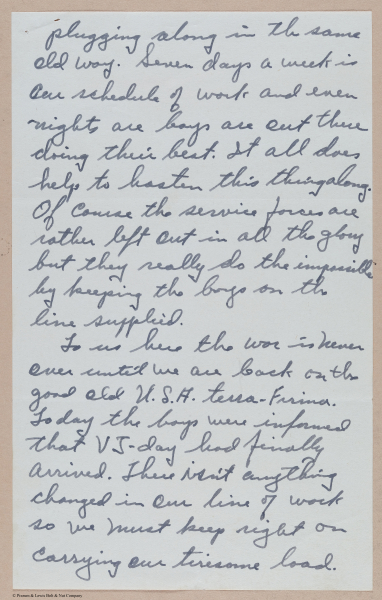 plugging along in the same
old way. Seven days a week is
our schedule of work and even
nights are boys are out there
doing their best. It all does
help to hasten this thing along.
Of course the service forces are
rather left out in all the glory
but they really do the impossible
by keeping the boys on the
line supplied.
To us here the war is never
over until we are back on the
good old U.S.A. terra-Firma.
Today the boys were informed
that VJ-day had finally
arrived. There isn't anything
changed in our line of work
so we must keep right on
carrying our tiresome load.
© Pearson & Lewis Bolt & Nut Company